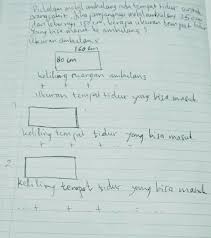 Didalam mobil ambulans ada tempat tidur orang
yang sakit. Jika panjangnya mobil ambulans 160 cm
dan lebarnya 80 cm, berapa ukuran tempat tidur
yang bisa masuk ke ambulans?
Ukuran ambulans
160 cm
80 cm
keliling ruangan ambulans
+ + + =
ukuran tempat tidur yang bisa masuk
1
keliling tempat tidur yang bisa masuk
+ + + =
2.
keliling tempat tidur yang bisa masuk
+ + + =